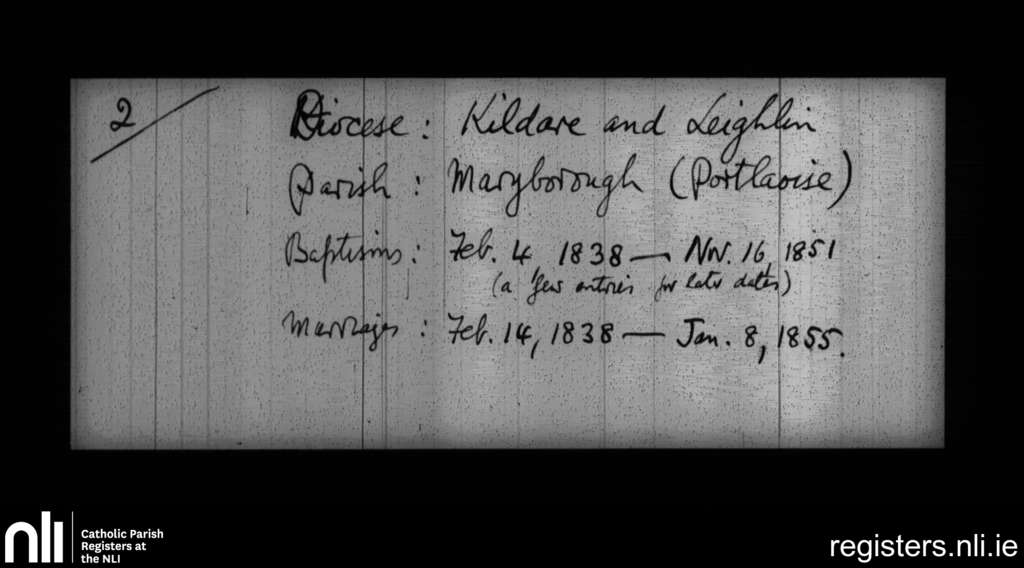 2
Diocese: Kildare and Leighlin
Parish: Maryborough (Portlaoise)
Baptisms: Feb. 4, 1838 — Nov. 16, 1851
(a few entries for later dates)
Marriages: Feb. 14, 1838 — Jan. 8, 1855.
nli
Catholic Parish
Registers at
the NLI
registers.nli.ie